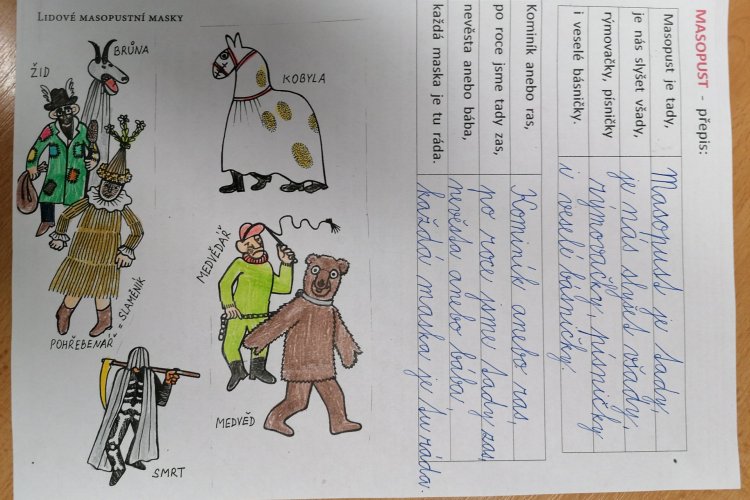 LIDOVÉ MASOPUSTNÍ MASKY
BRŮNA
ŽID
KOBYLA
MEDVĚDÁŘ
POHŘEBENÁŘ = SLAMĚNÍK
MEDVĚD
SMRT
MASOPUST - přepis:
Masopust je tady,
je nás slyšet všady,
rýmovačky, písničky
i veselé básničky.
Masopust je tady,
je nás slyšet všady,
rýmovačky, písničky
i veselé básničky.
Kominík anebo ras,
po roce jsme tady zas,
nevěsta anebo bába,
každá maska je tu ráda.
Kominík anebo ras,
po roce jsme tady zas,
nevěsta anebo bába,
každá maska je tu ráda.